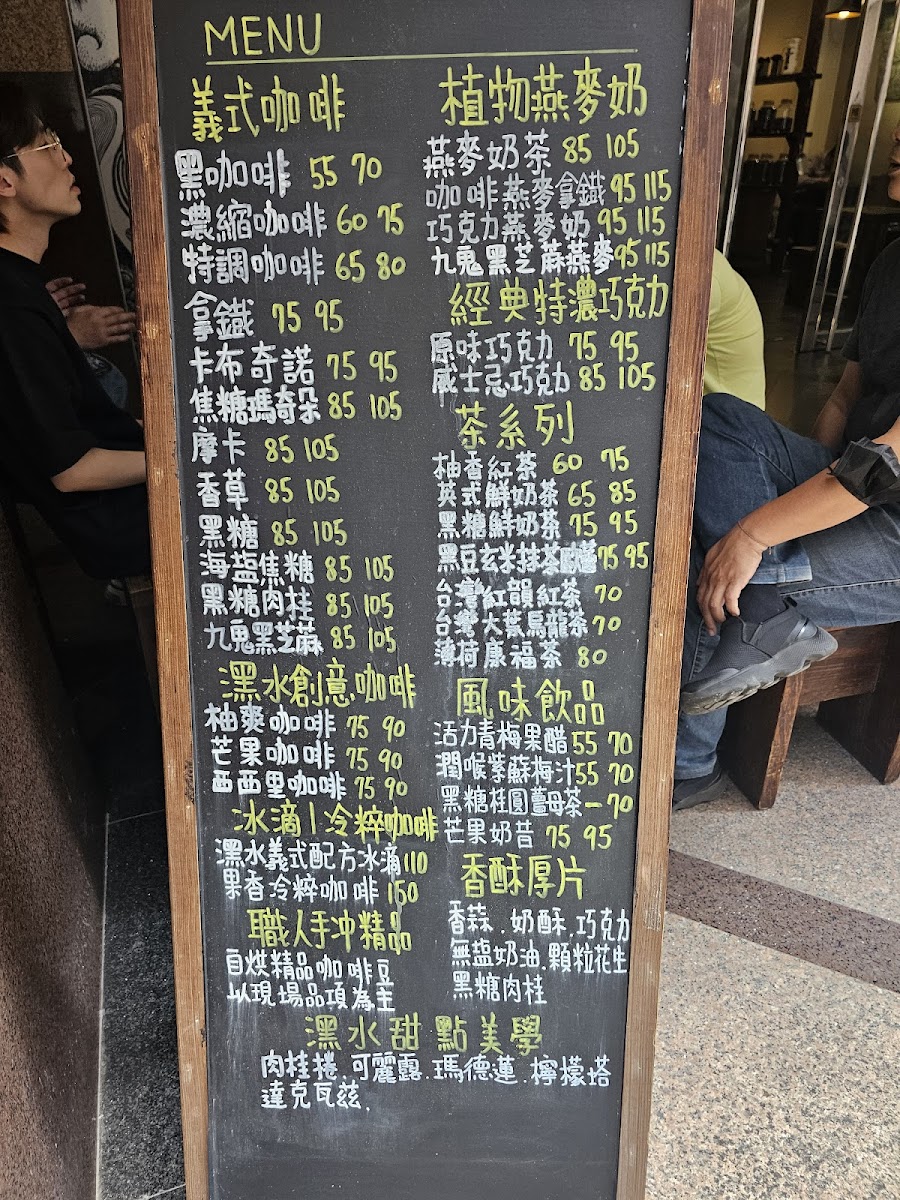 MENU
義式咖啡
黑咖啡 55 70
濃縮咖啡 60 75
特調咖啡 65 80
拿鐵 75 95
卡布奇諾 75 95
焦糖瑪奇朵 85 105
摩卡 85 105
香草 85 105
黑糖 85 105
海盐焦糖 85 105
黑糖肉桂 85 105
九鬼黑芝麻 85 105
潶水創意咖啡
柚爽咖啡 75 90
芒果咖啡 75 90
西西里咖啡 75 90
冰滴|冷粹咖啡
潶水義式配方冰滴 110
果香冷粹咖啡 150
職人手冲精品
自烘精品咖啡豆
以現場品項為主
植物燕麥奶
燕麥奶茶 85 105
咖啡燕麥拿鐵 95 115
巧克力燕麥奶 95 115
九鬼黑芝蔴燕麥 95 115
經典特濃巧克力
原味巧克力 75 95
威士忌巧克力 85 105
茶系列
柚香紅茶 60 75
英式鮮奶茶 65 85
黑糖鮮奶茶 75 95
黑豆玄米抹茶歐蕾 75 95
台灣紅韻紅茶 70
台灣大葉烏龍茶 70
薄荷康福茶 80
風味飲品
活力青梅果醋 55 70
潤喉紫蘇梅汁 55 70
黑糖桂圓薑母茶-70
芒果奶昔 75 95
香酥厚片
香蒜.奶酥.巧克力
無盐奶油.顆粒花生
黑糖肉桂
潶水甜點美學
肉桂捲.可麗露.瑪德蓮.檸檬塔
達克瓦茲.